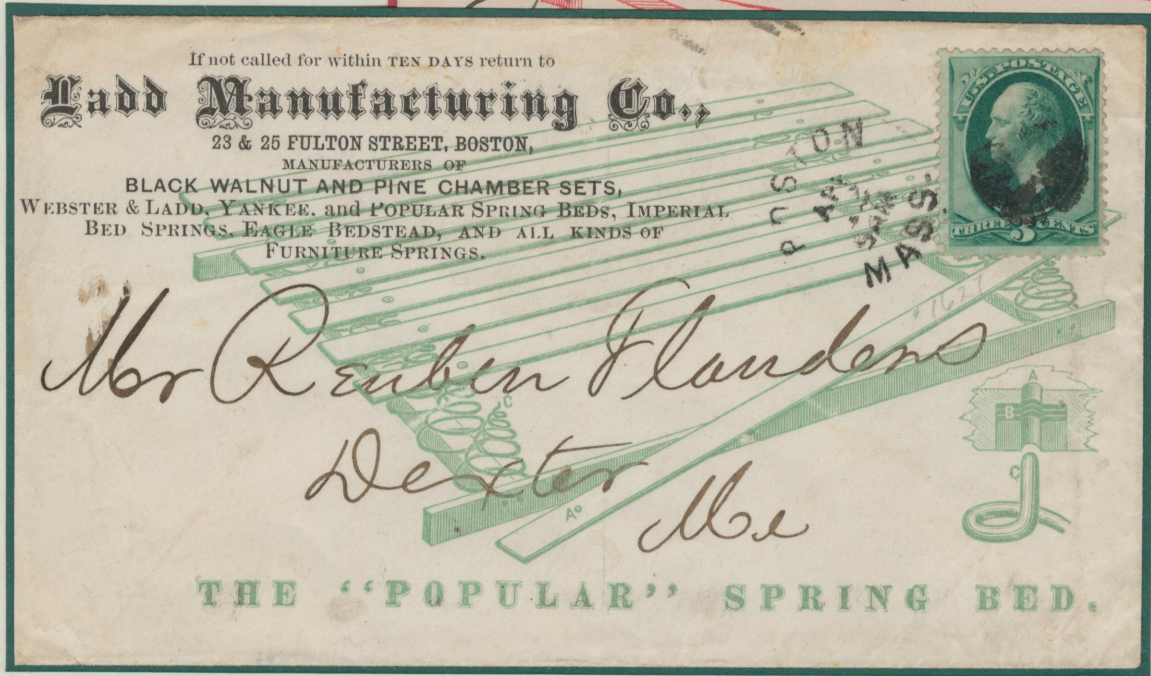 If not called for within TEN DAYS return to
Ladd Manufacturing Co.,
23 & 25 FULTON STREET, BOSTON,
MANUFACTURERS OF
BLACK WALNUT AND PINE CHAMBER SETS,
WEBSTER & LADD, YANKEE. and POPULAR SPRING BEDS, IMPERIAL
BED SPRINGS, EAGLE BEDSTEAD, AND ALL KINDS OF
FURNITURE SPRINGS.
U.S. POSTAGE
THREE 3 CENTS
BOSTON
MASS.
1627
Mr Reuben Flanders
Dexter
Me
A
B
C
C
A
THE “POPULAR” SPRING BED.